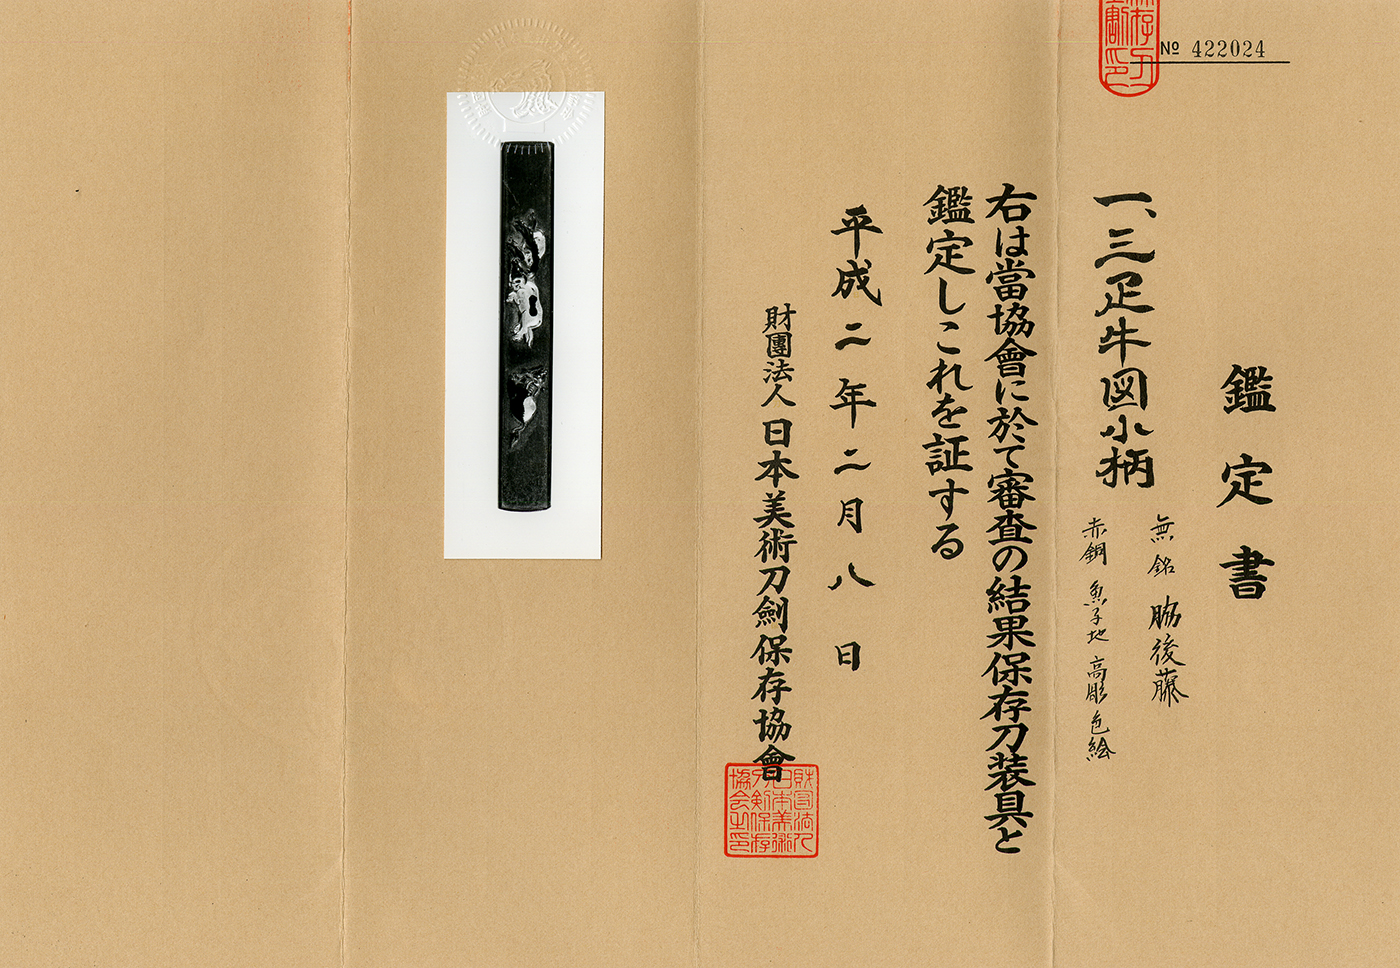 № 422024
鑑定書
一、三疋牛図小柄
無銘 脇後藤
赤銅 魚子地 高彫 色絵
右は當協會に於て審査の結果保存刀装具と
鑑定しこれを証する
平成二年二月八日
財團法人 日本美術刀劍保存協會
財団法人
日本美術
刀剣保存
協会之印